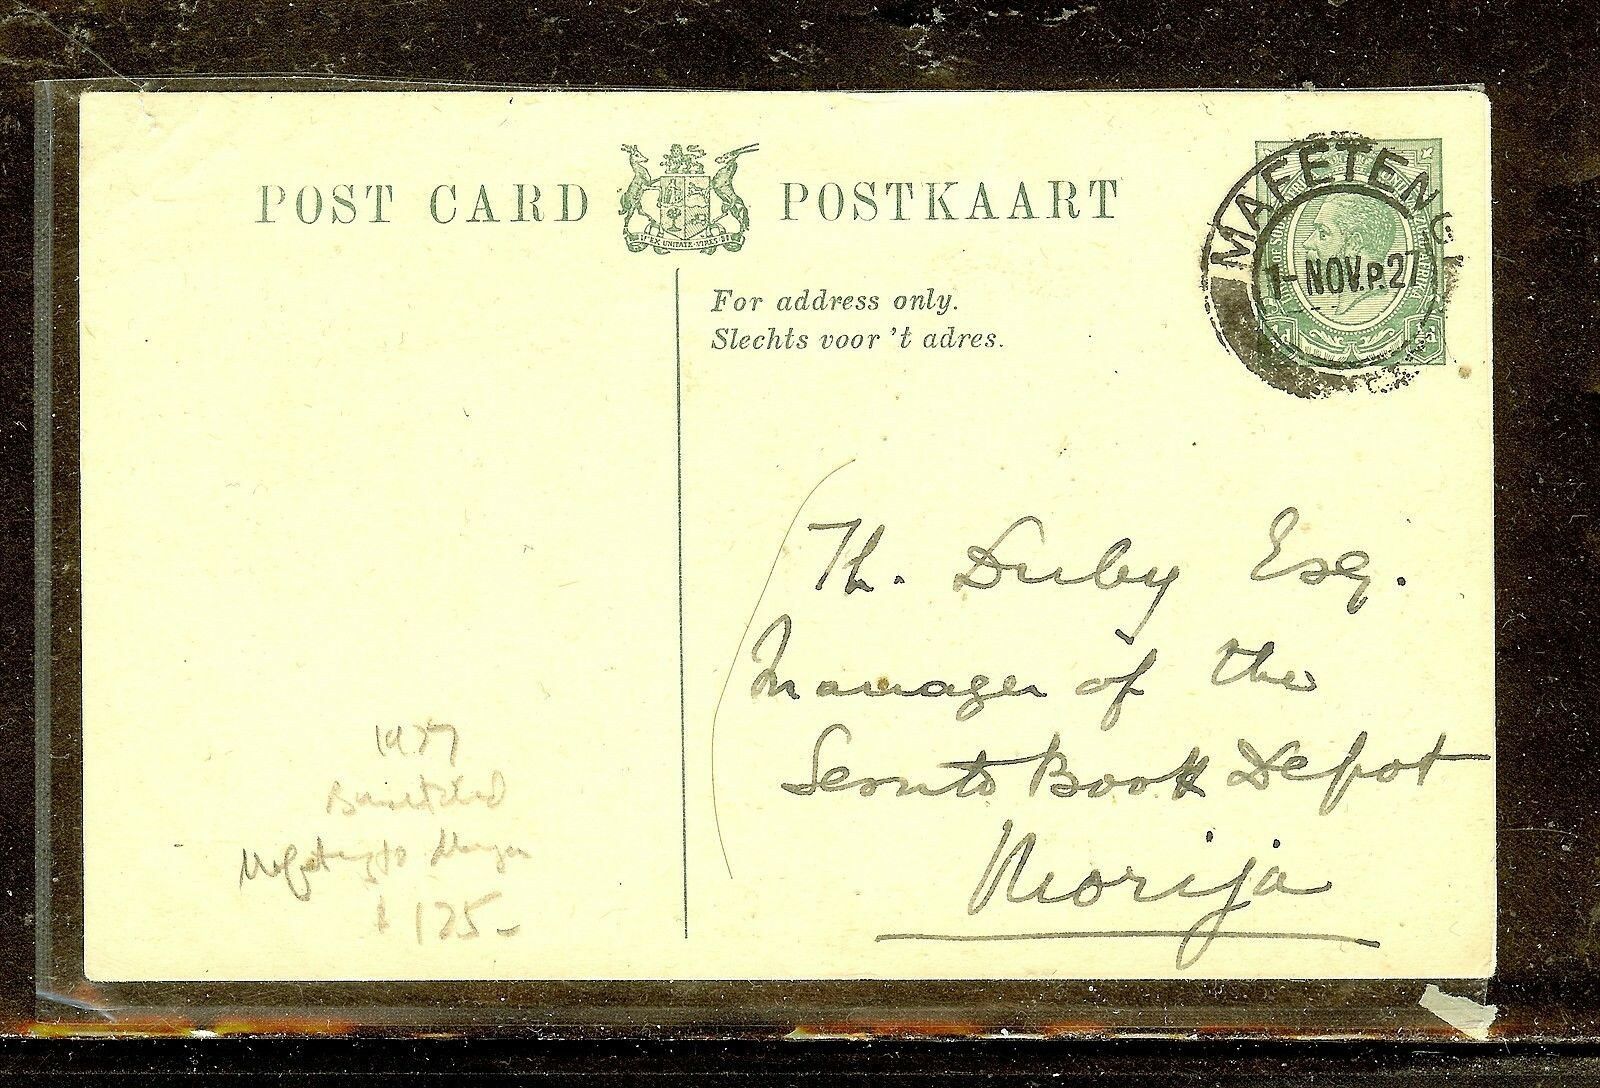 POST CARD POSTKAART
EX UNITATE VIRES
For address only.
Slechts voor 't adres.
MAFETENG
1- NOV.P.27
½d ½d
Th. Duby Esq.
Manager of the
Sesuto Book Depot
Morija
1927
Mafeteng to Morija
$ 125-